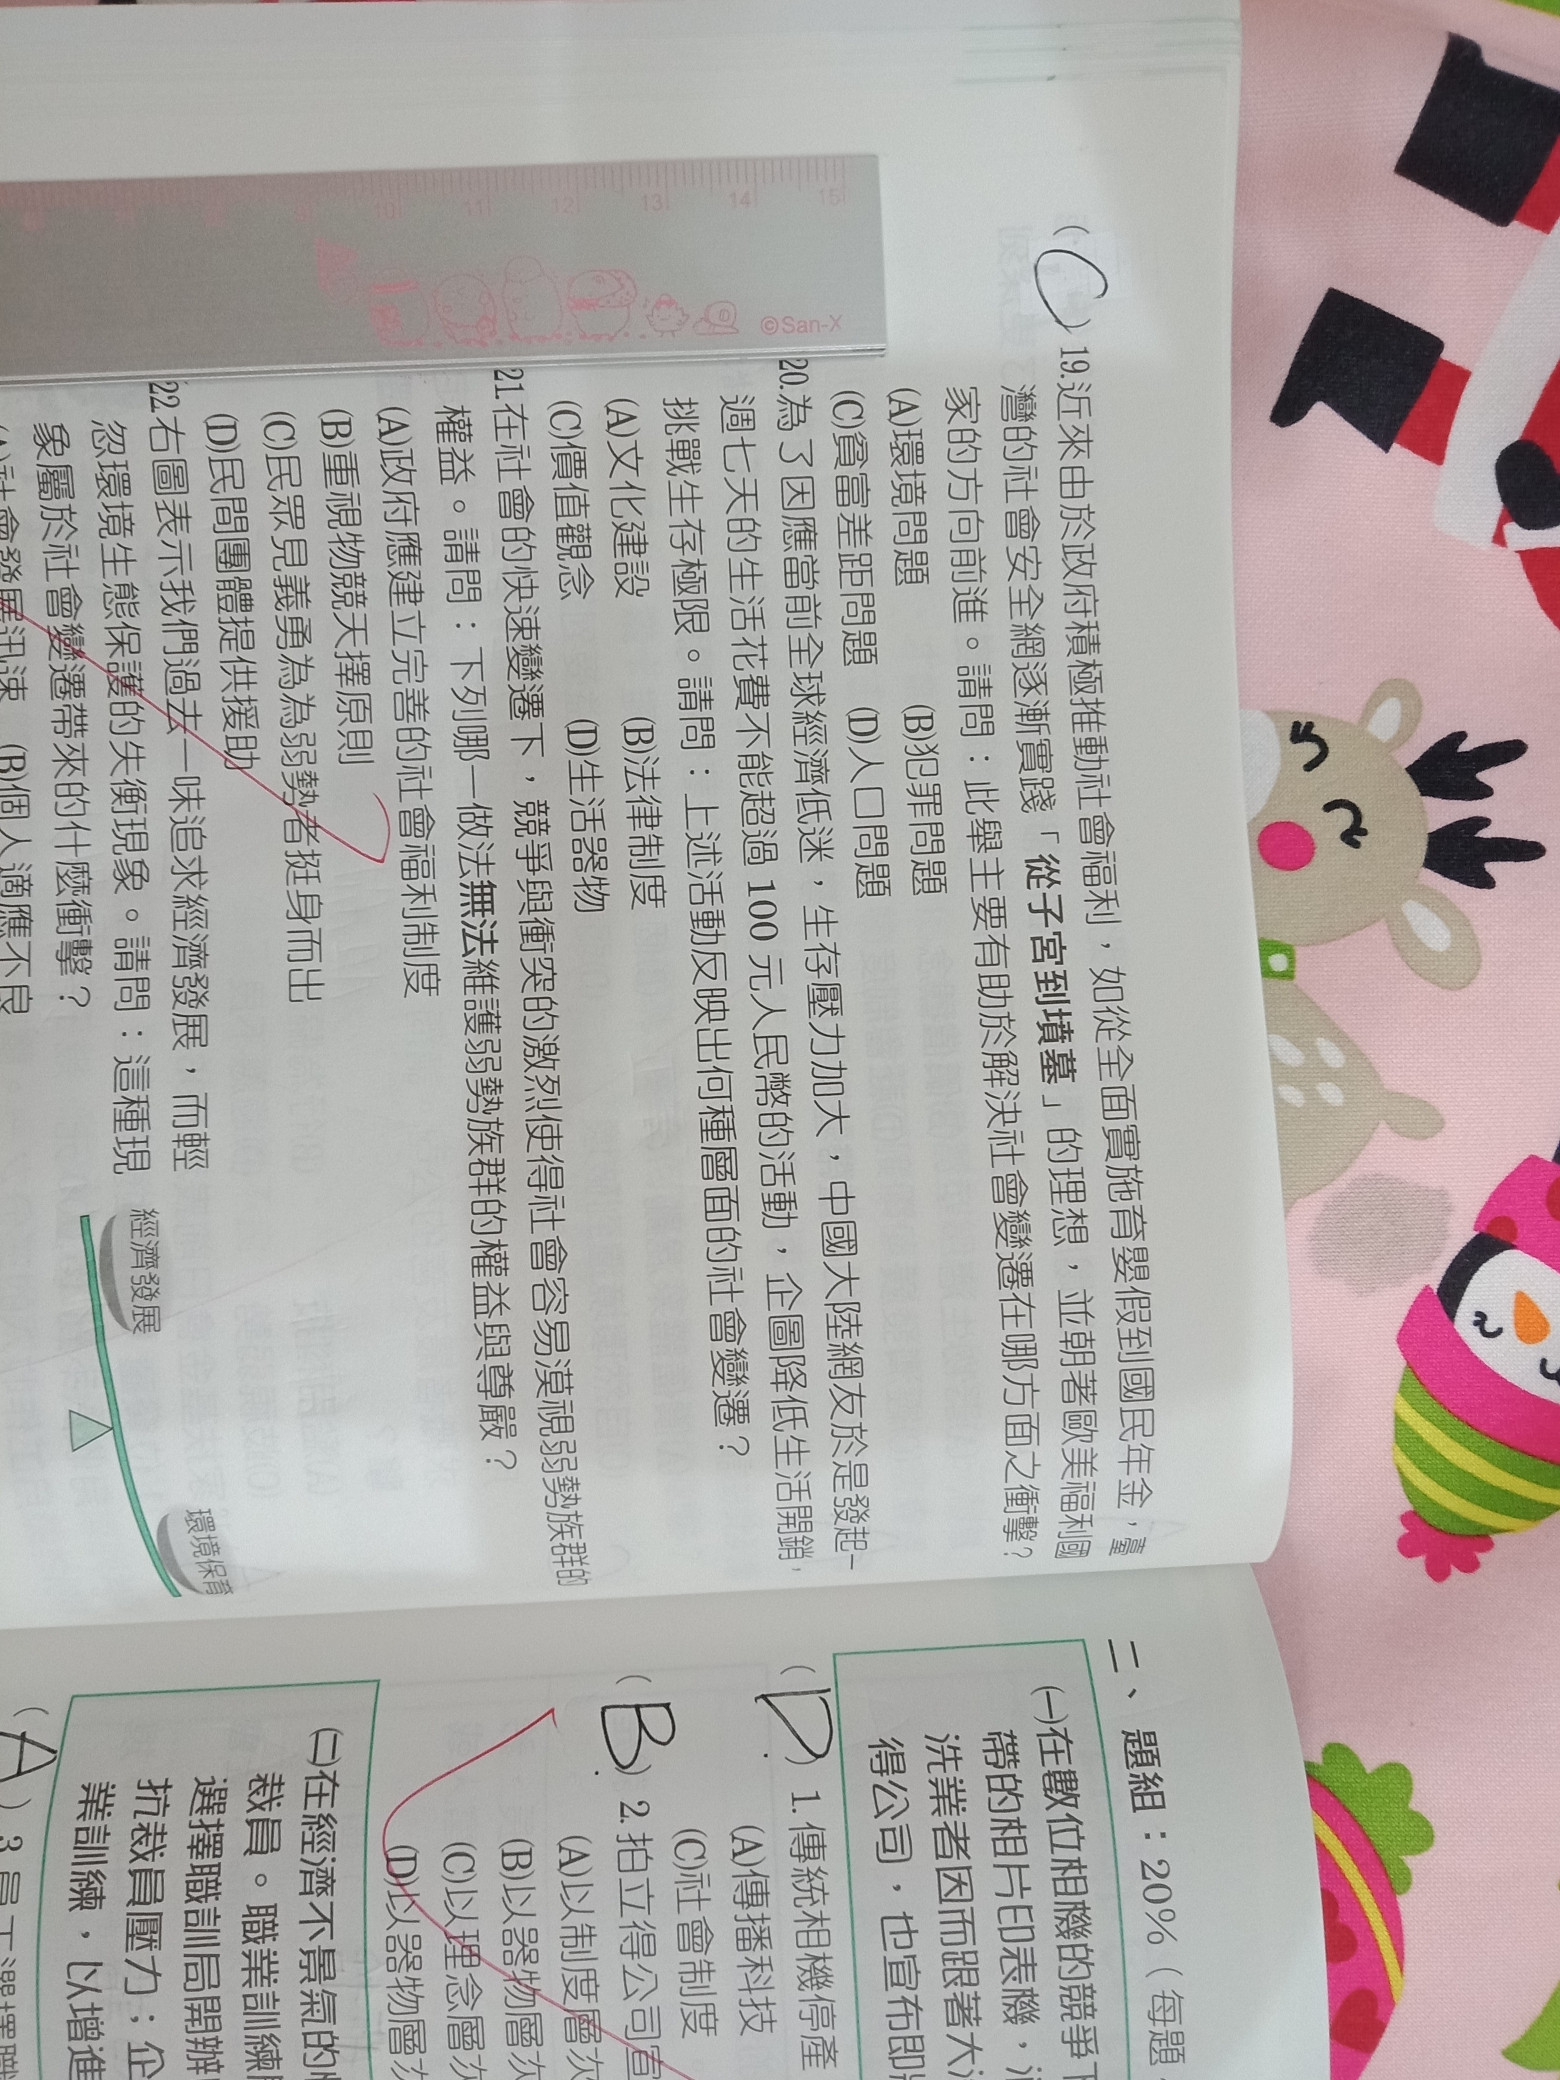 (C) 19.近來由於政府積極推動社會福利，如從全面實施育嬰假到國民年金，臺
灣的社會安全網逐漸實踐「從子宮到墳墓」的理想，並朝著歐美福利國
家的方向前進。請問：此舉主要有助於解決社會變遷在哪方面之衝擊？
(A)環境問題 (B)犯罪問題
(C)貧富差距問題 (D)人口問題
20.為了因應當前全球經濟低迷，生存壓力加大，中國大陸網友於是發起一
週七天的生活花費不能超過100元人民幣的活動，企圖降低生活開銷，
挑戰生存極限。請問：上述活動反映出何種層面的社會變遷？
(A)文化建設 (B)法律制度
(C)價值觀念 (D)生活器物
21.在社會的快速變遷下，競爭與衝突的激烈使得社會容易漠視弱勢族群的
權益。請問：下列哪一做法無法維護弱勢族群的權益與尊嚴？
(A)政府應建立完善的社會福利制度
(B)重視物競天擇原則
(C)民眾見義勇為為弱勢者挺身而出
(D)民間團體提供援助
22.右圖表示我們過去一味追求經濟發展，而輕
忽環境生態保護的失衡現象。請問：這種現
象屬於社會變遷帶來的什麼衝擊？
(A)社會發展迅速 (B)個人適應不良
經濟發展
環境保育
10 11 12 13 14 15
©San-X
二、題組：20%（每題
(一)在數位相機的競爭下
帶的相片印表機，
洗業者因而跟著大
得公司，也宣布即
(D) 1.傳統相機停產
(A)傳播科技
(C)社會制度
(B) 2.拍立得公司宣
(A)以制度層次
(B)以器物層次
(C)以理念層次
(D)以器物層次
(二)在經濟不景氣的
裁員。職業訓練
選擇職訓局開辦
抗裁員壓力；企
業訓練，以增進
(A) 3.員工選擇職